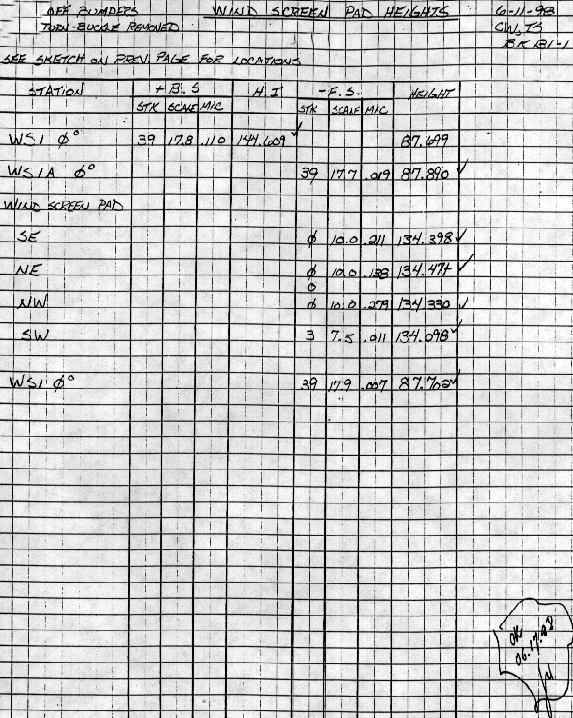 OFF BUMPERS WIND SCREEN PAD HEIGHTS 6-11-98
TURN-BUCKLE REMOVED CW, TS
BK 131-1
SEE SKETCH ON PREV. PAGE FOR LOCATIONS
STATION + B.S H.I -F.S. HEIGHT
STK SCALE MIC STK SCALE MIC
WS1 φ° 39 17.8 .110 144.609 ✓ 87.699
WS1A φ° 39 17.7 .019 87.890 ✓
WIND SCREEN PAD
SE φ 10.0 .211 134.398 ✓
NE φ 10.0 .138 134.471 ✓
0
NW φ 10.0 .279 134.330 ✓
SW 3 7.5 .011 134.098 ✓
WS1 φ° 39 17.9 .007 87.702 ✓
OK
06.17.98